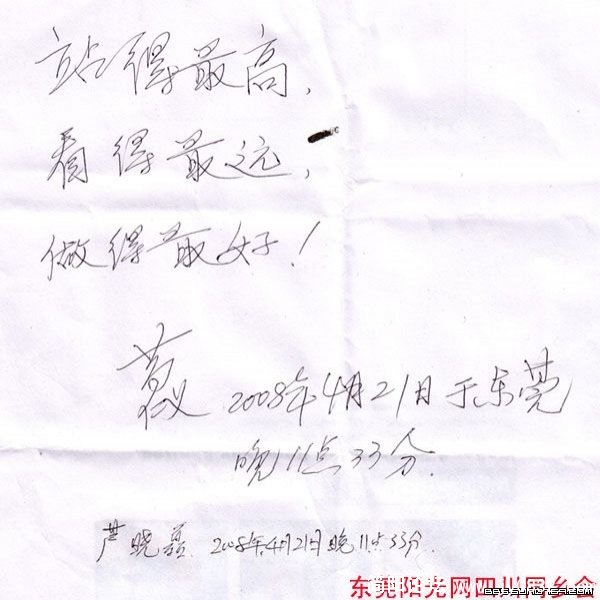 站得最高，
看得最远，
做得最好！
2008年4月21日于东莞
晚11点33分.
晓 2008年4月21日晚11点33分.
东莞阳光网四川同乡会